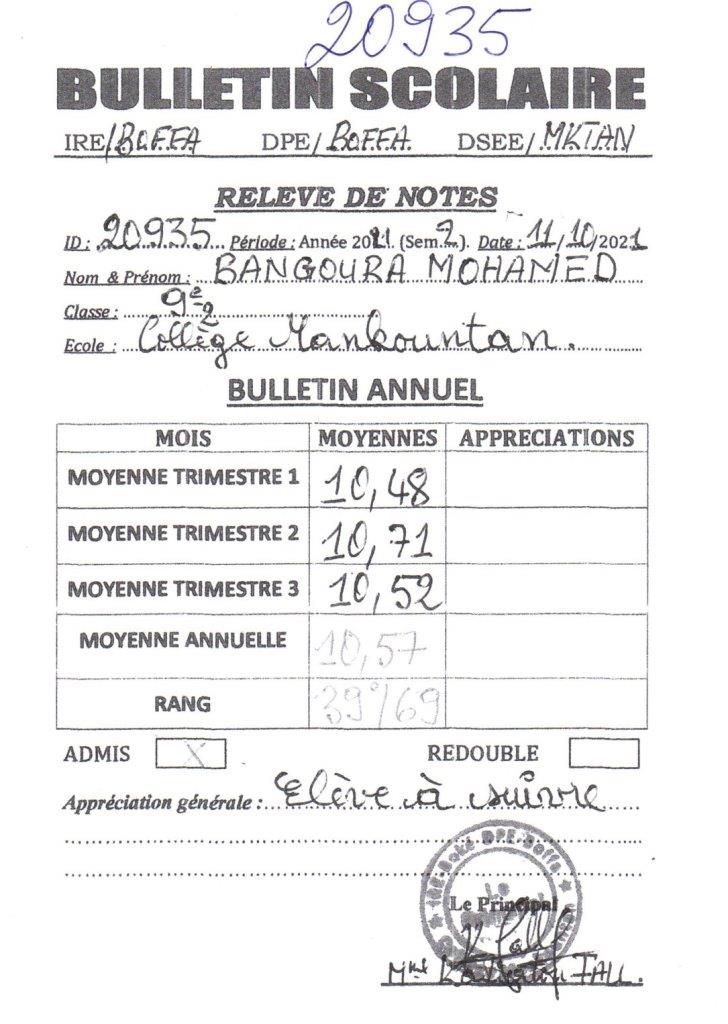 20935
BULLETIN SCOLAIRE
IRE/BOFFA DPE/BOFFA DSEE/MKTAN
RELEVE DE NOTES
ID : 20935 Période : Année 2021. (Sem 2). Date : 11/10/2021
Nom & Prénom : BANGOURA MOHAMED
Classe : 9e 2
Ecole : Collège Mankountan.
BULLETIN ANNUEL
MOIS MOYENNES APPRECIATIONS
MOYENNE TRIMESTRE 1 10,48
MOYENNE TRIMESTRE 2 10,71
MOYENNE TRIMESTRE 3 10,52
MOYENNE ANNUELLE 10,57
RANG 39°/69
ADMIS X REDOUBLE
Appréciation générale : Elève à suivre
IRE-Boké DPE-Boffa
Le Principal
Mme FALL.